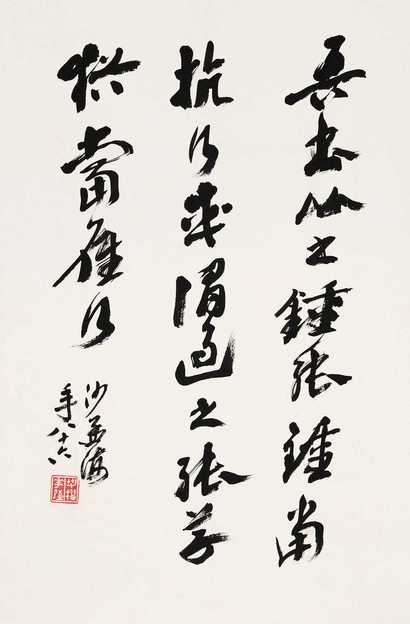 吾書比之鍾張鍾當
抗行或謂過之張草
猶當雁行
沙孟海
年八十六